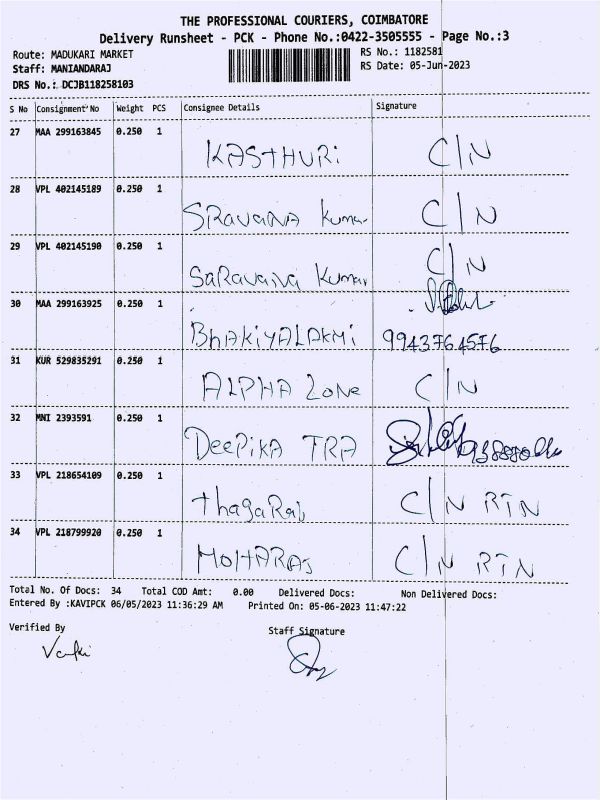 THE PROFESSIONAL COURIERS, COIMBATORE
Delivery Runsheet - PCK - Phone No.:0422-3505555 - Page No.:3
Route: MADUKARI MARKET RS No.: 1182581
Staff: MANIANDARAJ RS Date: 05-Jun-2023
DRS No.: DCJB118258103
S No Consignment No Weight PCS Consignee Details Signature
27 MAA 299163845 0.250 1 KASTHURI C/N
28 VPL 402145189 0.250 1 SRavaNA Kumar C/N
29 VPL 402145190 0.250 1 SaRavaNa Kumar C/N
30 MAA 299163925 0.250 1 BhAKiYALAKMi 9943764576
31 KUR 529835291 0.250 1 ALPHA ZoNe C/N
32 MNI 2393591 0.250 1 DeePiKA TRA
33 VPL 218654109 0.250 1 thagaRaj C/N RTN
34 VPL 218799920 0.250 1 MOHARAJ C/N RTN
Total No. Of Docs: 34 Total COD Amt: 0.00 Delivered Docs: Non Delivered Docs:
Entered By :KAVIPCK 06/05/2023 11:36:29 AM Printed On: 05-06-2023 11:47:22
Verified By Staff Signature